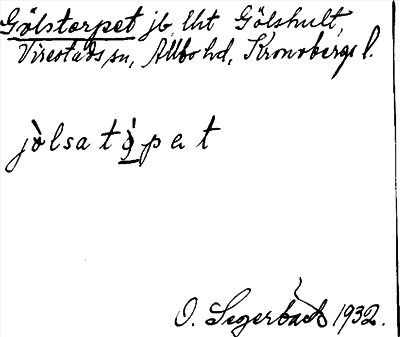 Gölstorpet jb, lht Gölshult,
Virestads sn, Allbo hd, Kronobergs l.
jòlsatò̲pet
O. Segerbäck 1932.